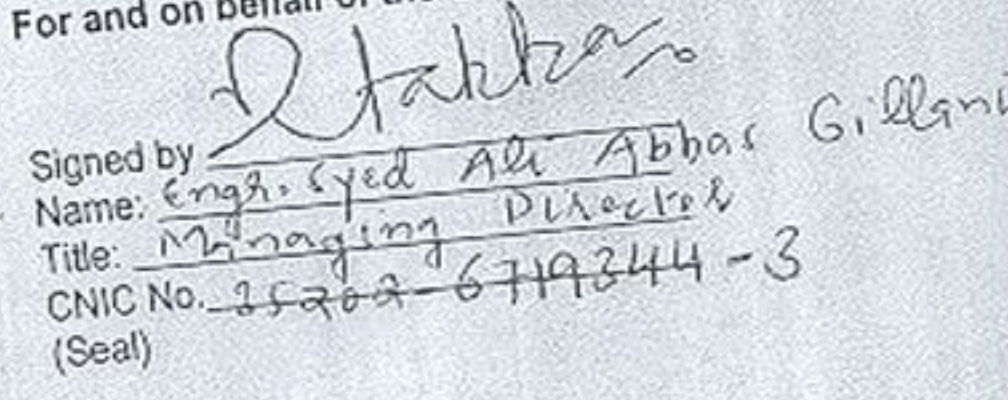 For and on behalf of the
Signed by
Name: Engr. Syed Ali Abbas Gillani
Title: Managing Director
CNIC No. 35202-6719344-3
(Seal)